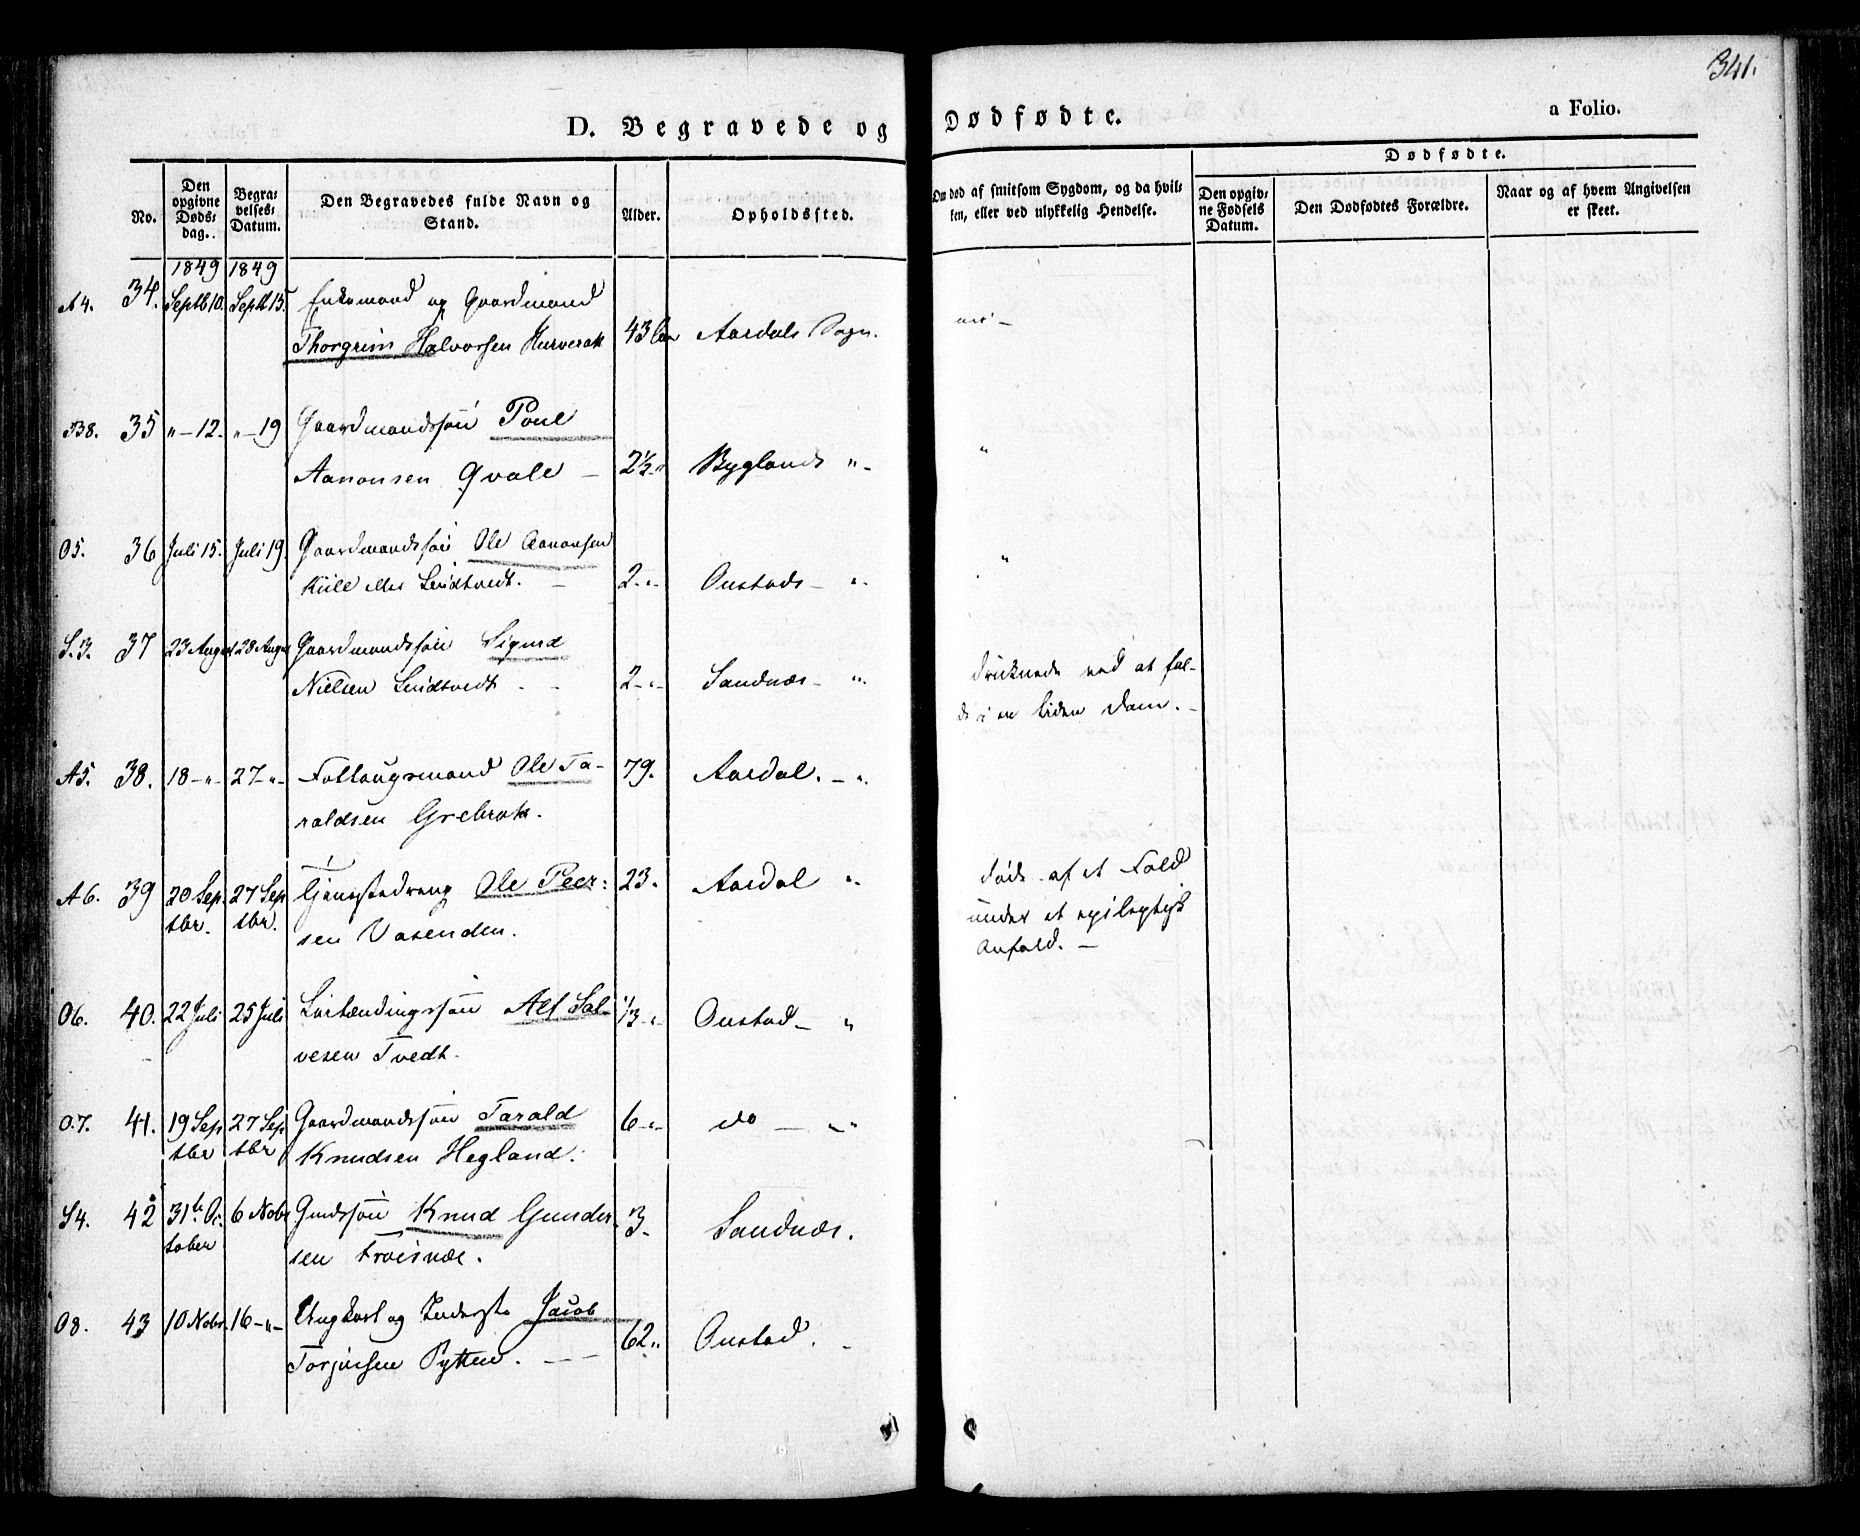 341.
D. Begravede og Dødfødte. a Folio.
No.
Den opgivne Døds-dag.
Begra-velses-Datum.
Den Begravedes fulde Navn og Stand.
Alder.
Opholdssted.
Om død af smitsom Sygdom, og da hvil-ken, eller ved ulykkelig Hendelse.
Dødfødte.
Den opgiv-ne Fødsels Datum.
Den Dødfødtes Forældre.
Naar og af hvem Angivelsen er skeet.
1849 1849
A4. 34. Septb 10. Septb 15. Enkemand og Gaardmand
Thorgrim Halvorsen Hurverak 43 Aar Aardals Sogn.
B8. 35 "-12. "-19 Gaardmandssøn Poul
Aanonsen Qvale - 2½ " Byglands "- "
O5. 36 Juli 15. Juli 19. Gaardmandssøn Ole Aanonsen
eller Lindtvedt. - 2-" Oustads- " "
S.3. 37 23 August 28 Aug Gaardmandssøn Sigurd
Nielsen Lindtvedt - - 2-" Sandnæs- "
druknede ved at fal-
dt i en liden Dam. -
A5. 38. 18-"- 27-"- Fattougsmand Ole Ta- 79. Aardal. - ".
raldsen Grebrok.
A6. 39 20 Sep. 27 Sep Tjenestedreng Ole Peer: 23. Aardal "
tbr. tbr. sen Vasenden.
døde af et Fald
under et epileptisk
Anfald. -
O6. 40. 22 Juli 25 Juli Alf Sal- 1/3-" Oustad- "
vesen Tvedt.
O.7. 41. 19 Sep 27 Sep Gaardmandssøn Tarald 6-" do - "- "
tbr tbr Knudsen Hegland.
S4. 42 31te Oc- 6 Nobr Knud Gunder- 3- Sandnæs.
tober sen Froisnæs.
O8. 43 10 Nobr. 16-"- Ungkarl og Inderste Jacob
Torjusen Pytten. - - 62" Oustad.